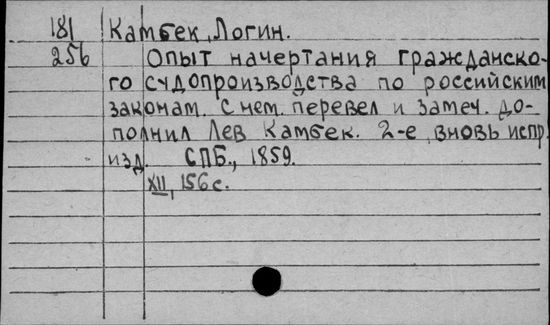 181 Камбек, Логин.
256 Опыт начертания гражданско-
го судопроизводства по российским
законам. С нем. перевел и замеч. до-
полнил Лев Камбек. 2-е, вновь испр.
изд. СПБ., 1859.
XII, 156 с.